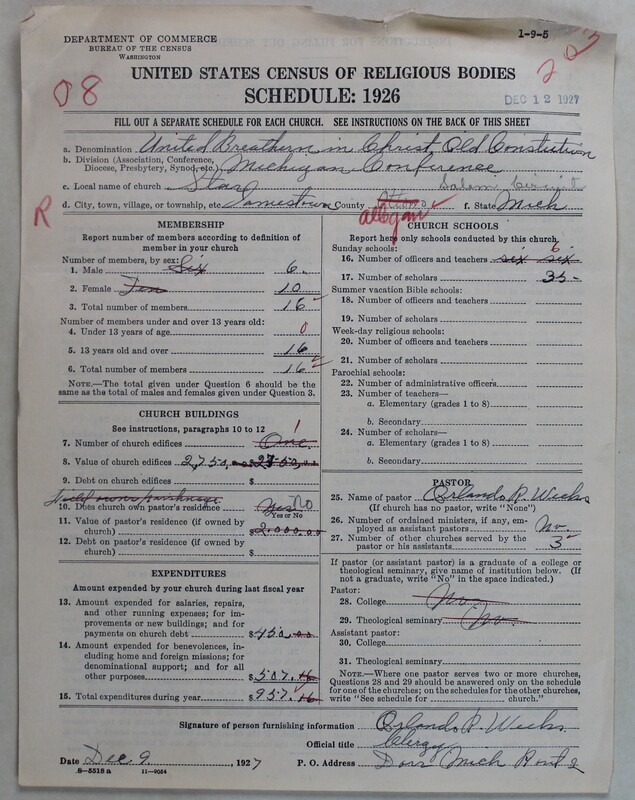 1-9-5
DEPARTMENT OF COMMERCE
BUREAU OF THE CENSUS
WASHINGTON
08
UNITED STATES CENSUS OF RELIGIOUS BODIES
SCHEDULE: 1926
DEC 12 1927
FILL OUT A SEPARATE SCHEDULE FOR EACH CHURCH. SEE INSTRUCTIONS ON THE BACK OF THIS SHEET
a. Denomination United Breathern in Christ, Old Constiution
b. Division (Association, Conference, Diocese, Presbytery, Synod, etc.) Michigan Conference
c. Local name of church Star Salem Circuit
d. City, town, village, or township, etc. Jamestown County Ottawa Allegan f. State Mich
R
MEMBERSHIP
Report number of members according to definition of member in your church
Number of members, by sex:
1. Male Six 6
2. Female Ten 10
3. Total number of members 16
Number of members under and over 13 years old:
4. Under 13 years of age 0
5. 13 years old and over 16
6. Total number of members 16
NOTE.—The total given under Question 6 should be the same as the total of males and females given under Question 3.
CHURCH BUILDINGS
See instructions, paragraphs 10 to 12
7. Number of church edifices One 1
8. Value of church edifices 2,750. $2750.00
9. Debt on church edifices $
10. Does church own pastor's residence Yes No
Yes or No
11. Value of pastor's residence (if owned by church) $2.000.00
12. Debt on pastor's residence (if owned by church) $
EXPENDITURES
Amount expended by your church during last fiscal year
13. Amount expended for salaries, repairs, and other running expenses; for improvements or new buildings; and for payments on church debt $450.00
14. Amount expended for benevolences, including home and foreign missions; for denominational support; and for all other purposes $507.16
15. Total expenditures during year $957.16
CHURCH SCHOOLS
Report here only schools conducted by this church
Sunday schools:
16. Number of officers and teachers six six 6
17. Number of scholars 35
Summer vacation Bible schools:
18. Number of officers and teachers
19. Number of scholars
Week-day religious schools:
20. Number of officers and teachers
21. Number of scholars
Parochial schools:
22. Number of administrative officers
23. Number of teachers—
a. Elementary (grades 1 to 8)
b. Secondary
24. Number of scholars—
a. Elementary (grades 1 to 8)
b. Secondary
PASTOR
25. Name of pastor Orlando R. Weeks
(If church has no pastor, write "None")
26. Number of ordained ministers, if any, employed as assistant pastors No
27. Number of other churches served by the pastor or his assistants 3
If pastor (or assistant pastor) is a graduate of a college or theological seminary, give name of institution below. (If not a graduate, write "No" in the space indicated.)
Pastor:
28. College No
29. Theological seminary No
Assistant pastor:
30. College
31. Theological seminary
NOTE.—Where one pastor serves two or more churches, Questions 28 and 29 should be answered only on the schedule for one of the churches; on the schedules for the other churches, write "See schedule for church."
Signature of person furnishing information Orlando R. Weeks
Official title Clergy
Date Dec 9, 1927 P. O. Address Dorr Mich Rout 2
8-5518 a 11-9054